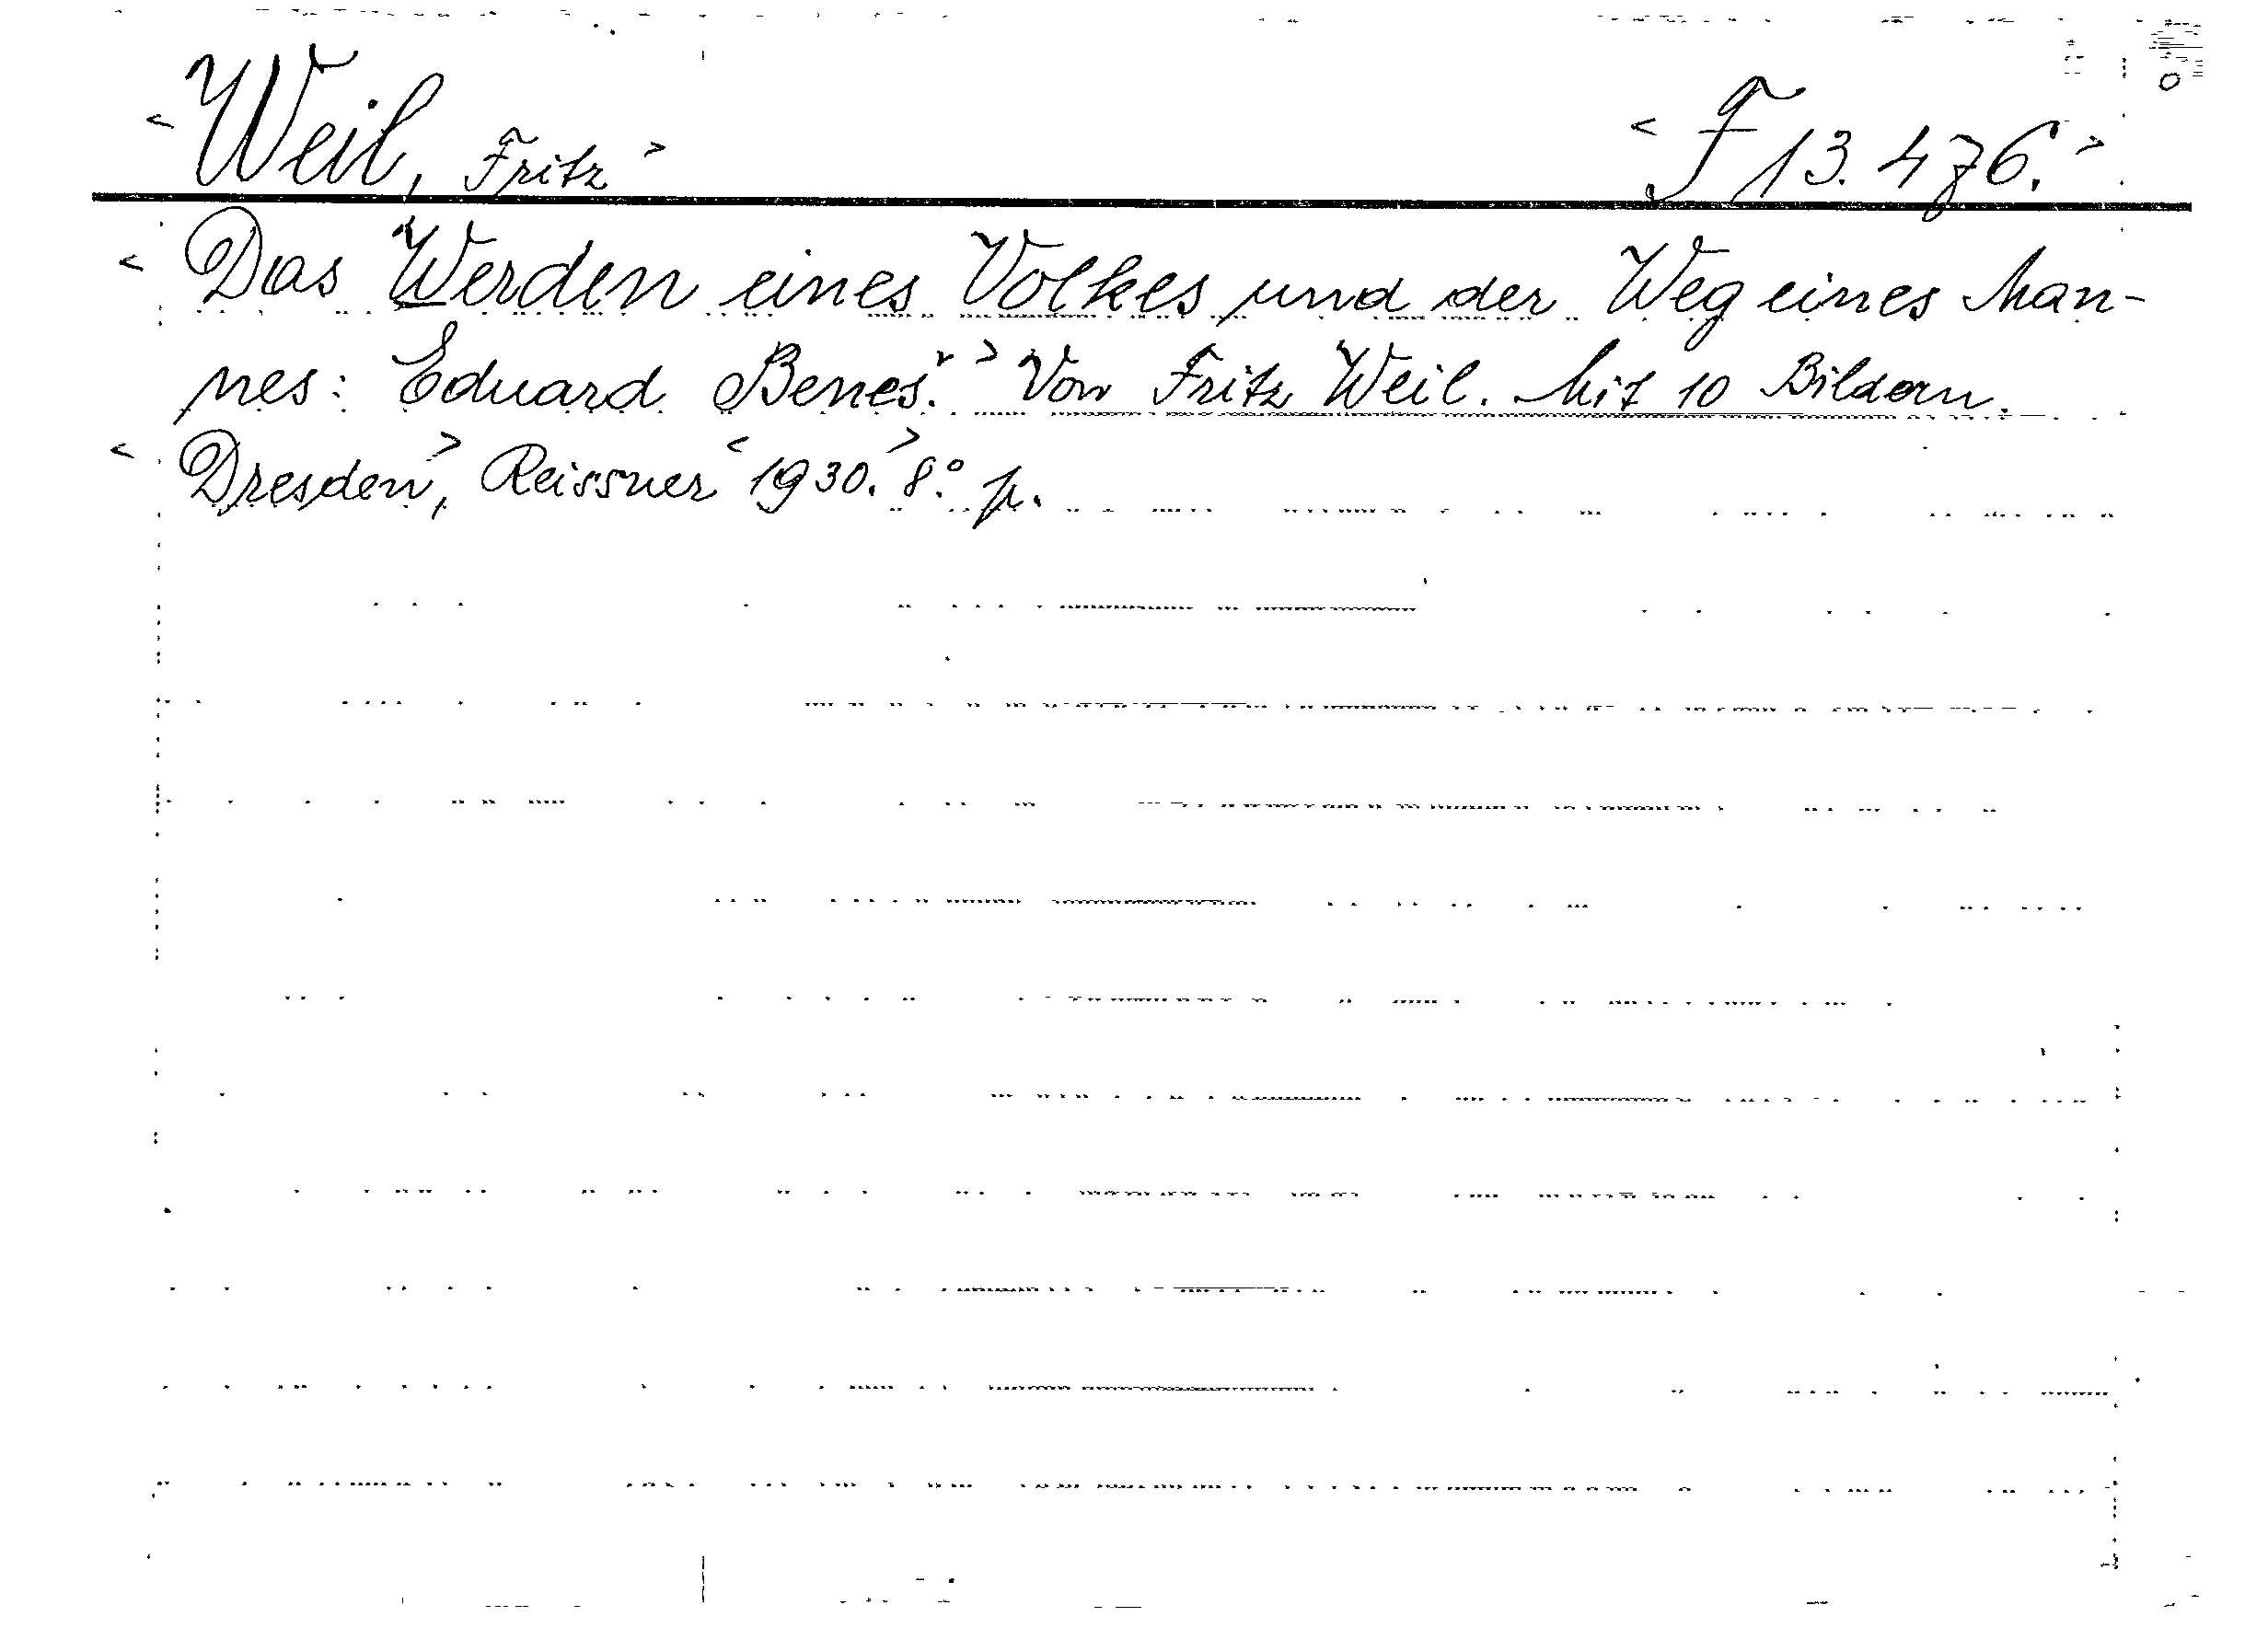 < Weil, Fritz > < F 13.476. >
< Das Werden eines Volkes und der Weg eines Man-
nes: Eduard Beneš. > Von Fritz Weil. Mit 10 Bildern.
< Dresden >, Reissner < 1930. > 8.° p.